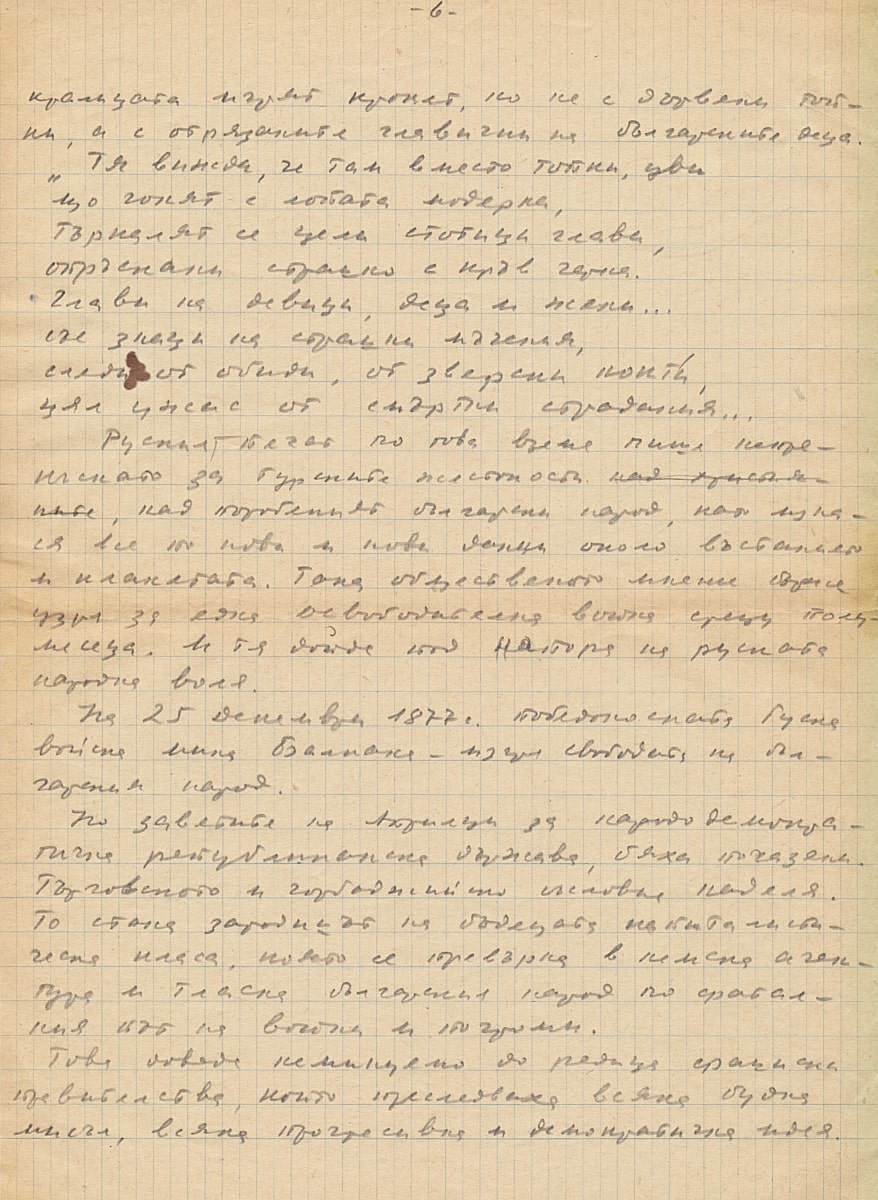 -6-
кралицата играят крокет, но не с дървени топ-
ки, а с отрязаните главички на българските деца.
„Тя вижда, че там вместо топки, цви
що гонят с лопата модерна,
търкалят се цели стотици глави,
опръскани страшно с кръв черна.
Глави на девици, деца и жени...
със знаци на страшни мъчения,
следи от обиди, от зверски нокти,
цял ужас от смъртни страдания...
Руският печат по това време пише непре-
къснато за турските жестокости над христия-
ните, над поробеният български народ, като изна-
ся все по нови и нови данни около въстанието
и кланетата. Така общественото мнение беше
узря за една освободителна война срещу полу-
месеца. И тя дойде под напора на руската
народна воля.
На 25 декември 1877 г. победоносната Руска
войска мина Балкана – изгря свободата на бъл-
гарския народ.
Но заветите на Априлци за народо демокра-
тична републиканска държава, бяха погазени.
Търговското и чорбаджийско съсловие надделя.
То стана зародишът на бъдещата капиталисти-
ческа класа, която се превърна в немска аген-
тура и тласка българския народ по фатал-
ния път на войни и погроми.
Това доведе неминуемо до редица фашиски
правителства, които преследваха всяка будна
мисъл, всяка прогресивна и демократична идея.